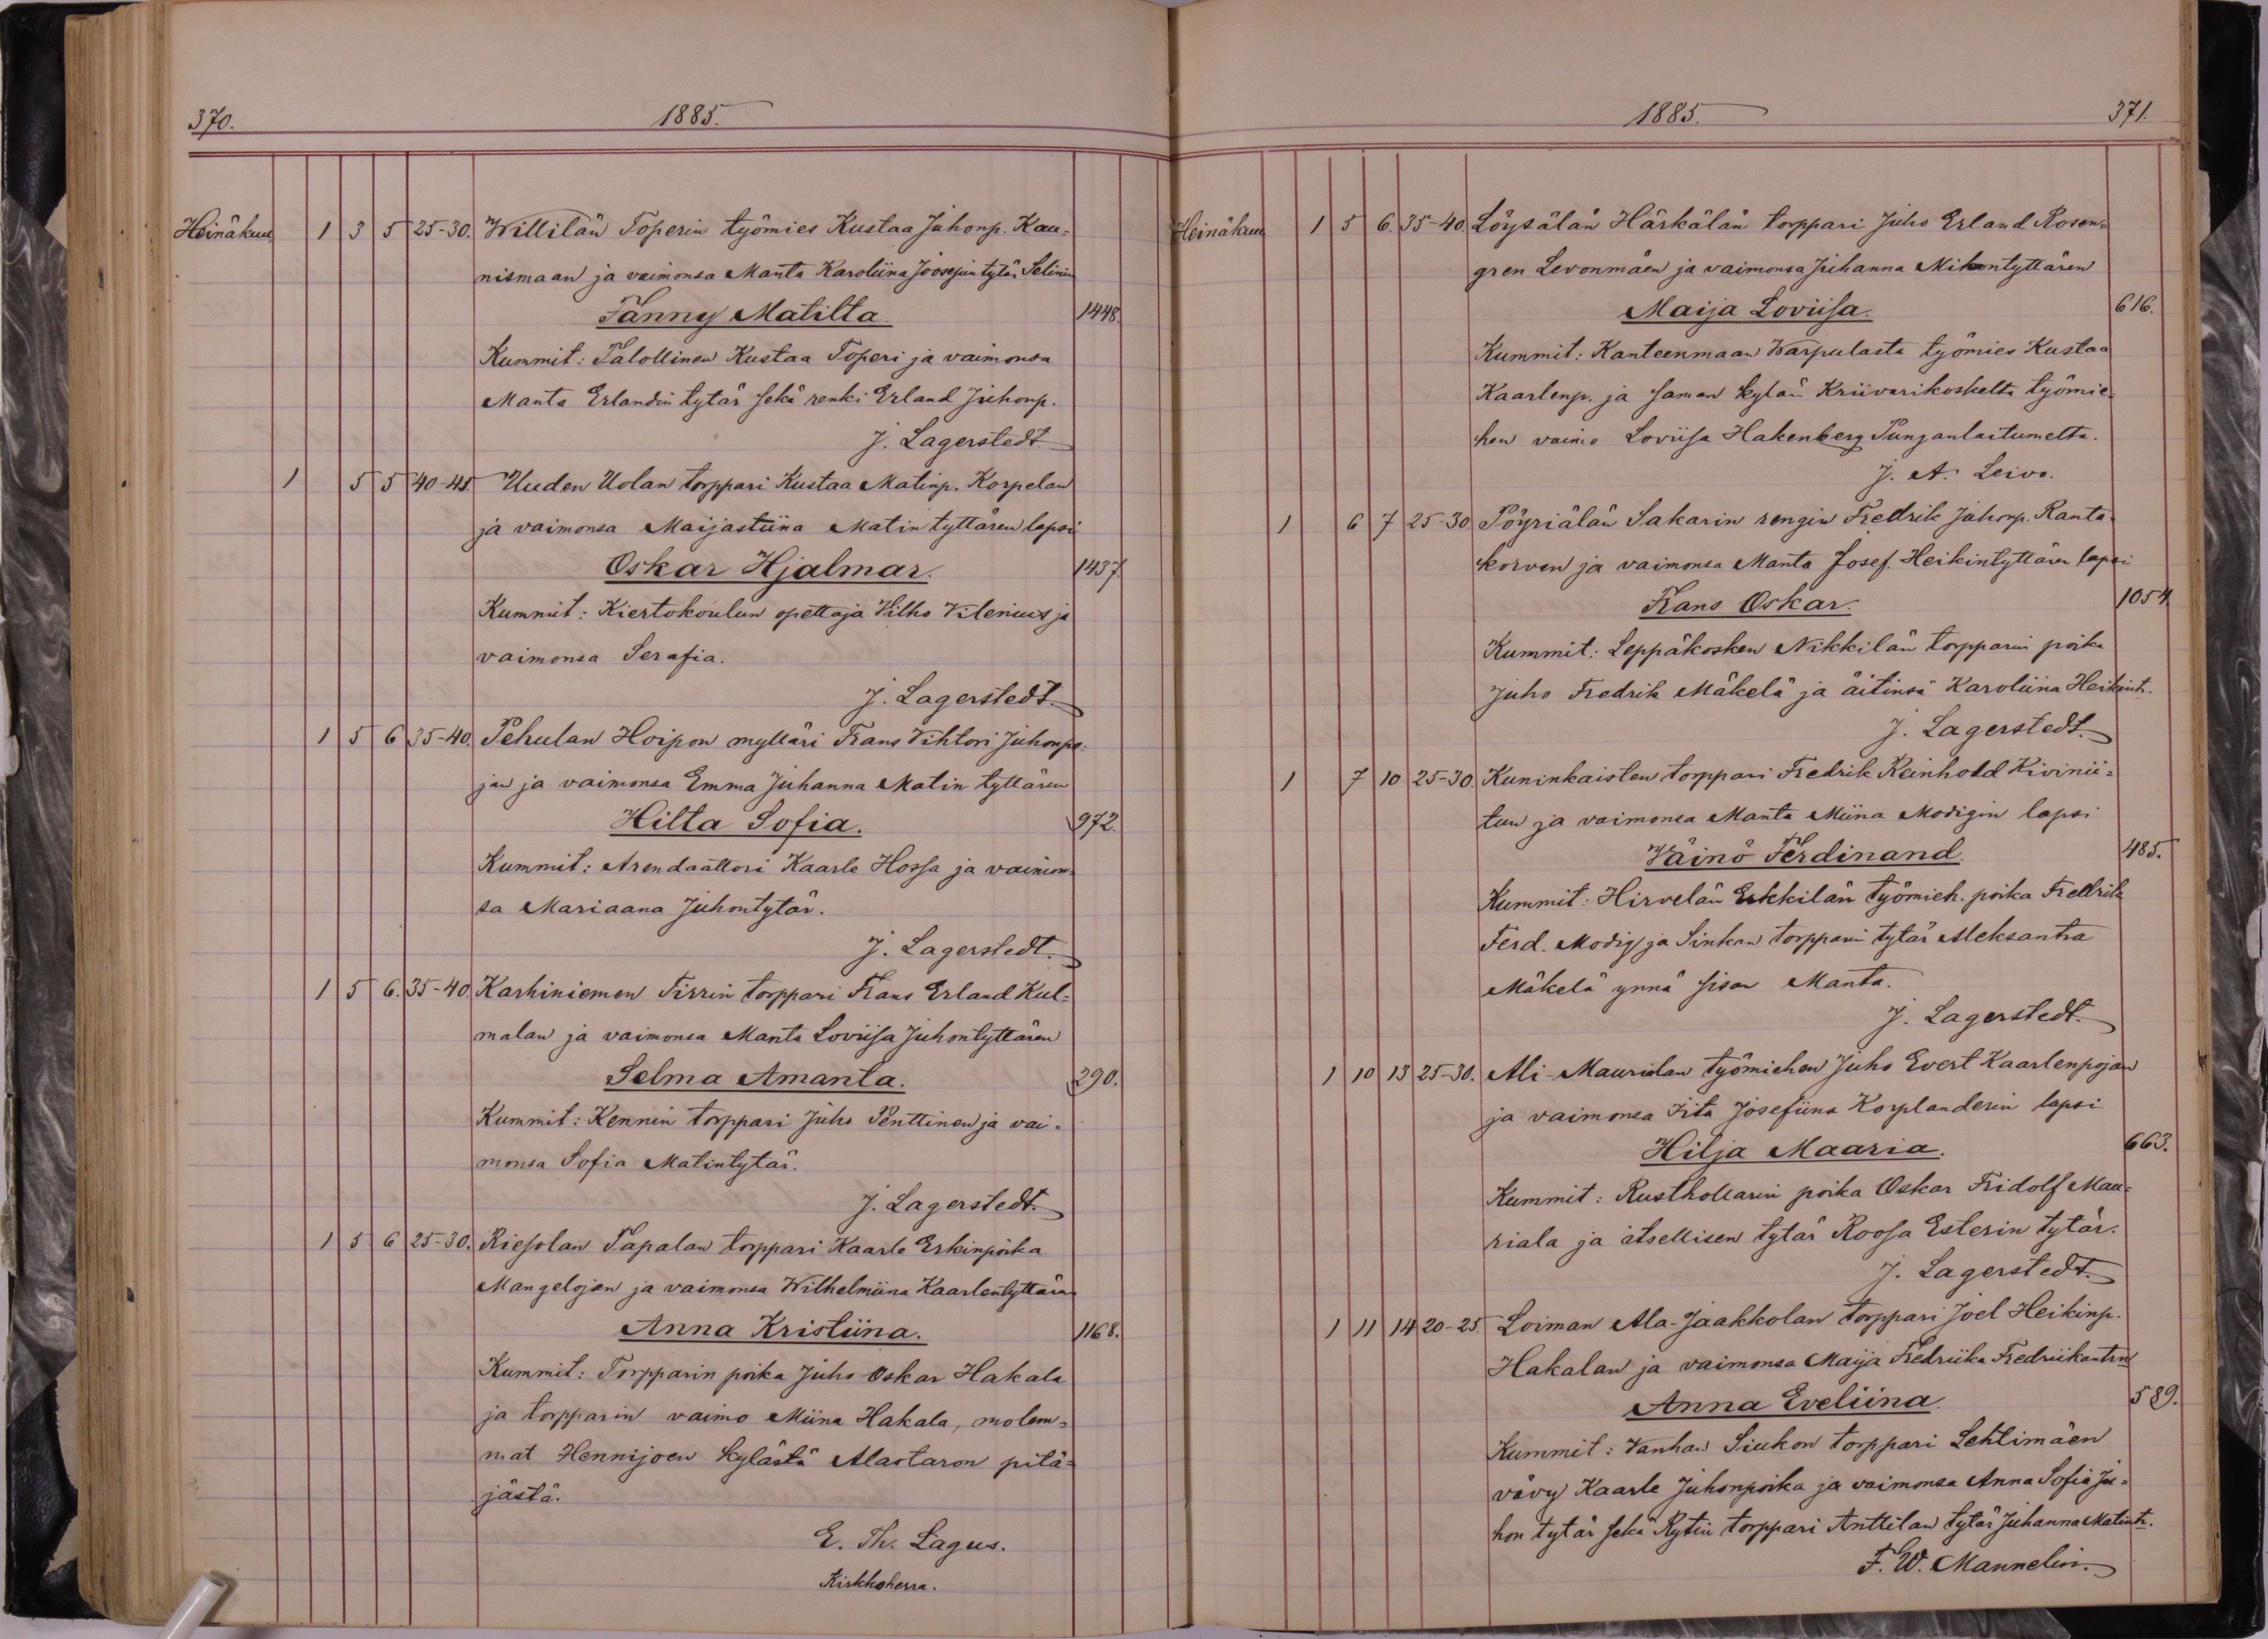 370.
1885.
Heinäkuu 1 3 5 25-30. Willilän Toperin työmies Kustaa Juhonp. Kau-
nismaan ja vaimonsa Manta Karoliina Joosepintytär Selinin
Fanny Matilta 1448.
Kummit: Talollinen Kustaa Toperi ja vaimonsa
Manta Erlandin tytär sekä renki Erland Juhonp.
J. Lagerstedt
1 5 5 40-45. Uuden Uolan torppari Kustaa Matinp. Korpelan
ja vaimonsa Maijastiina Matin tyttären lapsi
Oskar Hjalmar. 1437.
Kummit: Kiertokoulun opettaja Vilho Vilenius ja
vaimonsa Serafia.
J. Lagerstedt.
1 5 6 35-40. Pehulan Hoipon mylläri Frans Vihtori Juhonpo-
jan ja vaimonsa Emma Juhanna Matin tyttären
Hilta Sofia. 972.
Kummit: Arendaattori Kaarle Hossa ja vaimon-
sa Mariaana Juhontytär.
J. Lagerstedt.
1 5 6. 35-40. Karhiniemen Tirrin torppari Frans Erland Kul-
malan ja vaimonsa Manta Loviisa Juhontyttären
Selma Amanta. 290.
Kummit: Kennin torppari Juho Penttinen ja vai-
monsa Sofia Matintytär.
J. Lagerstedt.
1 5 6 25-30. Riesolan Papalan torppari Kaarle Erkinpoika
Mangelojan ja vaimonsa Wilhelmiina Kaarlentyttären
Anna Kristiina. 1168.
Kummit: Torpparin poika Juho Oskar Hakala
ja torpparin vaimo Miina Hakala, molem-
mat Hennijoen kylästä Alastaron pitä-
jästä.
E. Th. Lagus.
Kirkkoherra.
1885.
371.
Heinäkuu 1 5 6. 35-40. Löysälän Härkälän torppari Juho Erland Rosen-
gren Levonmäen ja vaimonsa Juhanna Mikontyttären
Maija Loviisa. 616.
Kummit: Kanteenmaan Warpulasta työmies Kustaa
Kaarlenp. ja saman kylän Kriivarikoskelta työmie-
hen vaimo Loviisa Hakenberg Punganlaitumelta.
J. A. Leivo.
1 6 7 25-30. Pöyriälän Sakarin rengin Fredrik Juhonp. Ranta-
korven ja vaimonsa Manta Josef. Heikintyttären lapsi
Frans Oskar. 1054
Kummit: Leppäkosken Nikkilän torpparin poika
Juho Fredrik Mäkelä ja äitinsä Karoliina Heikint.
J. Lagerstedt.
1 7 10 25-30. Kuninkaisten torppari Fredrik Reinhold Kivinii-
tun ja vaimonsa Manta Miina Modigin lapsi
Väinö Ferdinand. 485.
Kummit: Hirvelän Eskkilän työmieh. poika Fredrik
Ferd. Modig ja Sinkan torppari tytär Aleksantra
Mäkelä ynnä sisar Manta.
J. Lagerstedt.
1 10 13 25-30. Ali-Maurialan työmiehen Juho Evert Kaarlenpojan
ja vaimonsa Iita Josefiina Korplanderin lapsi
Hilja Maaria. 663.
Kummit: Rusthollarin poika Oskar Fridolf Mau-
riala ja itsellisen tytär Roosa Esterin tytär.
J. Lagerstedt.
1 11 14 20-25. Loiman Ala-Jaakkolan torppari Joel Heikinp.
Hakalan ja vaimonsa Maija Fredriika Fredriikantrn
Anna Eveliina. 589.
Kummit: Vanhan Siukon torppari Lehtimäen
vävy Kaarle Juhonpoika ja vaimonsa Anna Sofia Ju-
hon tytär sekä Rytin torppari Anttilan tytär Juhanna Matint.
F. W. Mannelin.